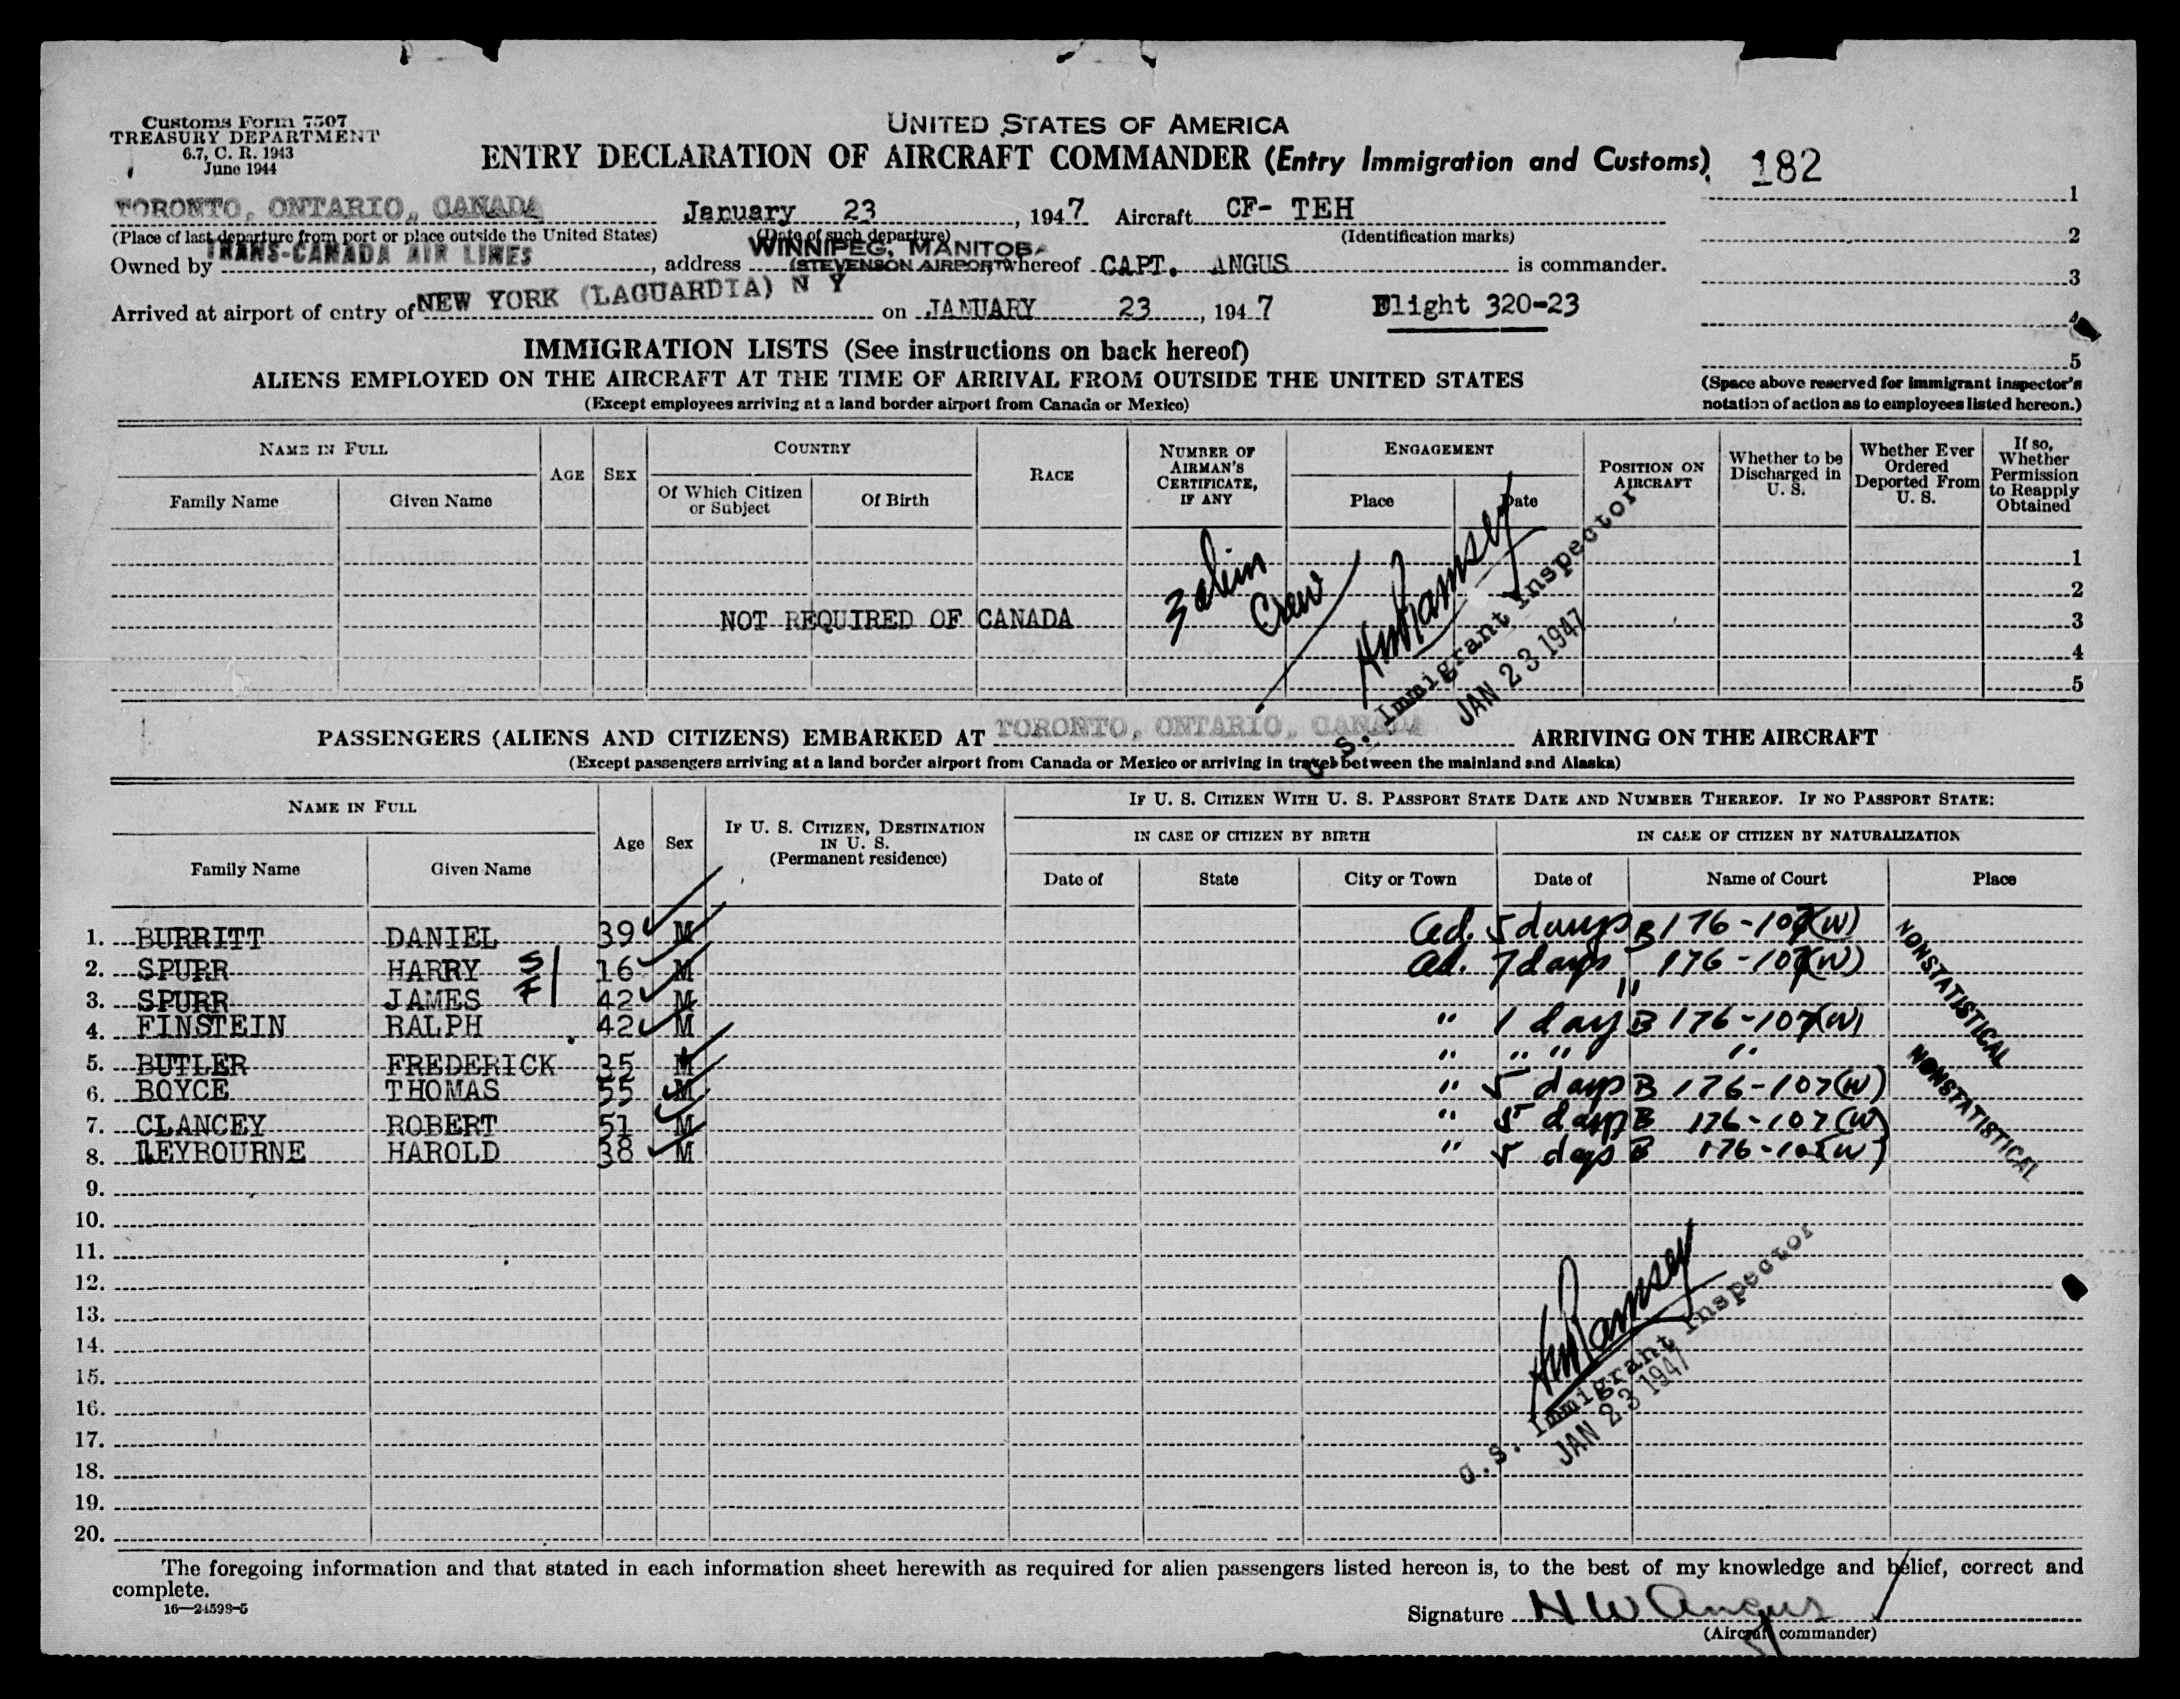 Customs Form 7507
TREASURY DEPARTMENT
6.7, C. R. 1943
June 1944
UNITED STATES OF AMERICA
ENTRY DECLARATION OF AIRCRAFT COMMANDER (Entry Immigration and Customs)
182
TORONTO, ONTARIO, CANADA January 23, 1947 Aircraft CF- TEH
(Place of last departure from port or place outside the United States) (Date of such departure) (Identification marks)
Owned by TRANS-CANADA AIR LINES, address WINNIPEG, MANITOB (STEVENSON AIRPORT) whereof CAPT. ANGUS is commander.
Arrived at airport of entry of NEW YORK (LAGUARDIA) N Y on JANUARY 23, 1947 Flight 320-23
1
2
3
4
5
(Space above reserved for immigrant inspector's notation of action as to employees listed hereon.)
IMMIGRATION LISTS (See instructions on back hereof)
ALIENS EMPLOYED ON THE AIRCRAFT AT THE TIME OF ARRIVAL FROM OUTSIDE THE UNITED STATES
(Except employees arriving at a land border airport from Canada or Mexico)
NAME IN FULL
Family Name Given Name
AGE SEX
COUNTRY
Of Which Citizen or Subject Of Birth
RACE
NUMBER OF AIRMAN'S CERTIFICATE, IF ANY
ENGAGEMENT
Place Date
POSITION ON AIRCRAFT
Whether to be Discharged in U. S.
Whether Ever Ordered Deported From U. S.
If so, Whether Permission to Reapply Obtained
1
2
NOT REQUIRED OF CANADA 3
4
5
3 alien Crew
HWRamsey
U.S. Immigrant Inspector
JAN 23 1947
PASSENGERS (ALIENS AND CITIZENS) EMBARKED AT TORONTO, ONTARIO, CANADA ARRIVING ON THE AIRCRAFT
(Except passengers arriving at a land border airport from Canada or Mexico or arriving in travel between the mainland and Alaska)
NAME IN FULL
Family Name Given Name
Age Sex
IF U. S. CITIZEN, DESTINATION IN U. S. (Permanent residence)
IF U. S. CITIZEN WITH U. S. PASSPORT STATE DATE AND NUMBER THEREOF. IF NO PASSPORT STATE:
IN CASE OF CITIZEN BY BIRTH IN CASE OF CITIZEN BY NATURALIZATION
Date of State City or Town Date of Name of Court Place
1. BURRITT DANIEL 39 M ad. 5 days B 176-107(W)
2. SPURR HARRY S 16 M ad. 7 days 176-107(W)
3. SPURR JAMES F 42 M "
4. EINSTEIN RALPH 42 M " 1 day B 176-107(W)
5. BUTLER FREDERICK 35 M " " " "
6. BOYCE THOMAS 55 M " 5 days B 176-107(W)
7. CLANCEY ROBERT 51 M " 5 days B 176-107(W)
8. LEYBOURNE HAROLD 38 M " 5 days B 176-107(W)
NONSTATISTICAL
NONSTATISTICAL
9.
10.
11.
12.
13.
14.
15.
16.
17.
18.
19.
20.
HWRamsey
U.S. Immigrant Inspector
JAN 23 1947
The foregoing information and that stated in each information sheet herewith as required for alien passengers listed hereon is, to the best of my knowledge and belief, correct and
complete.
16—24598-5
Signature H W Angus
(Aircraft commander)